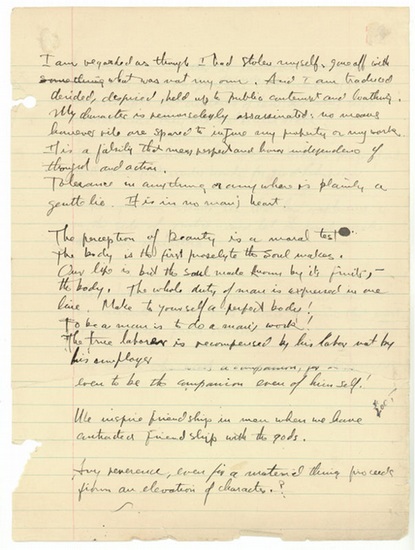 I am regarded as though I had stolen myself, gone off with
something what was not my own. And I am traduced
derided, despised, held up to public contempt and loathing.
My character is remorselessly assassinated: no means
however vile are spared to injure my property or my work.
It is a falsity that men respect and honor independence of
thought and action.
Tolerance in anything or anywhere is plainly a
gentle lie. It is in no man's heart.
The perception of Beauty is a moral test
The body is the first proselyte the Soul makes.
Our life is but the soul made known by its fruits,
the body. The whole duty of man is expressed in one
line. Make to yourself a perfect body!
To be a man is to do a man's work!
The true laborer is recompensed by his labor not by
his employer
a companion, or
even to be the companion even of himself!
We inspire friendship in men when we have
contracted friendship with the gods.
Any reverence, even for a material thing proceeds
from an elevation of character.?